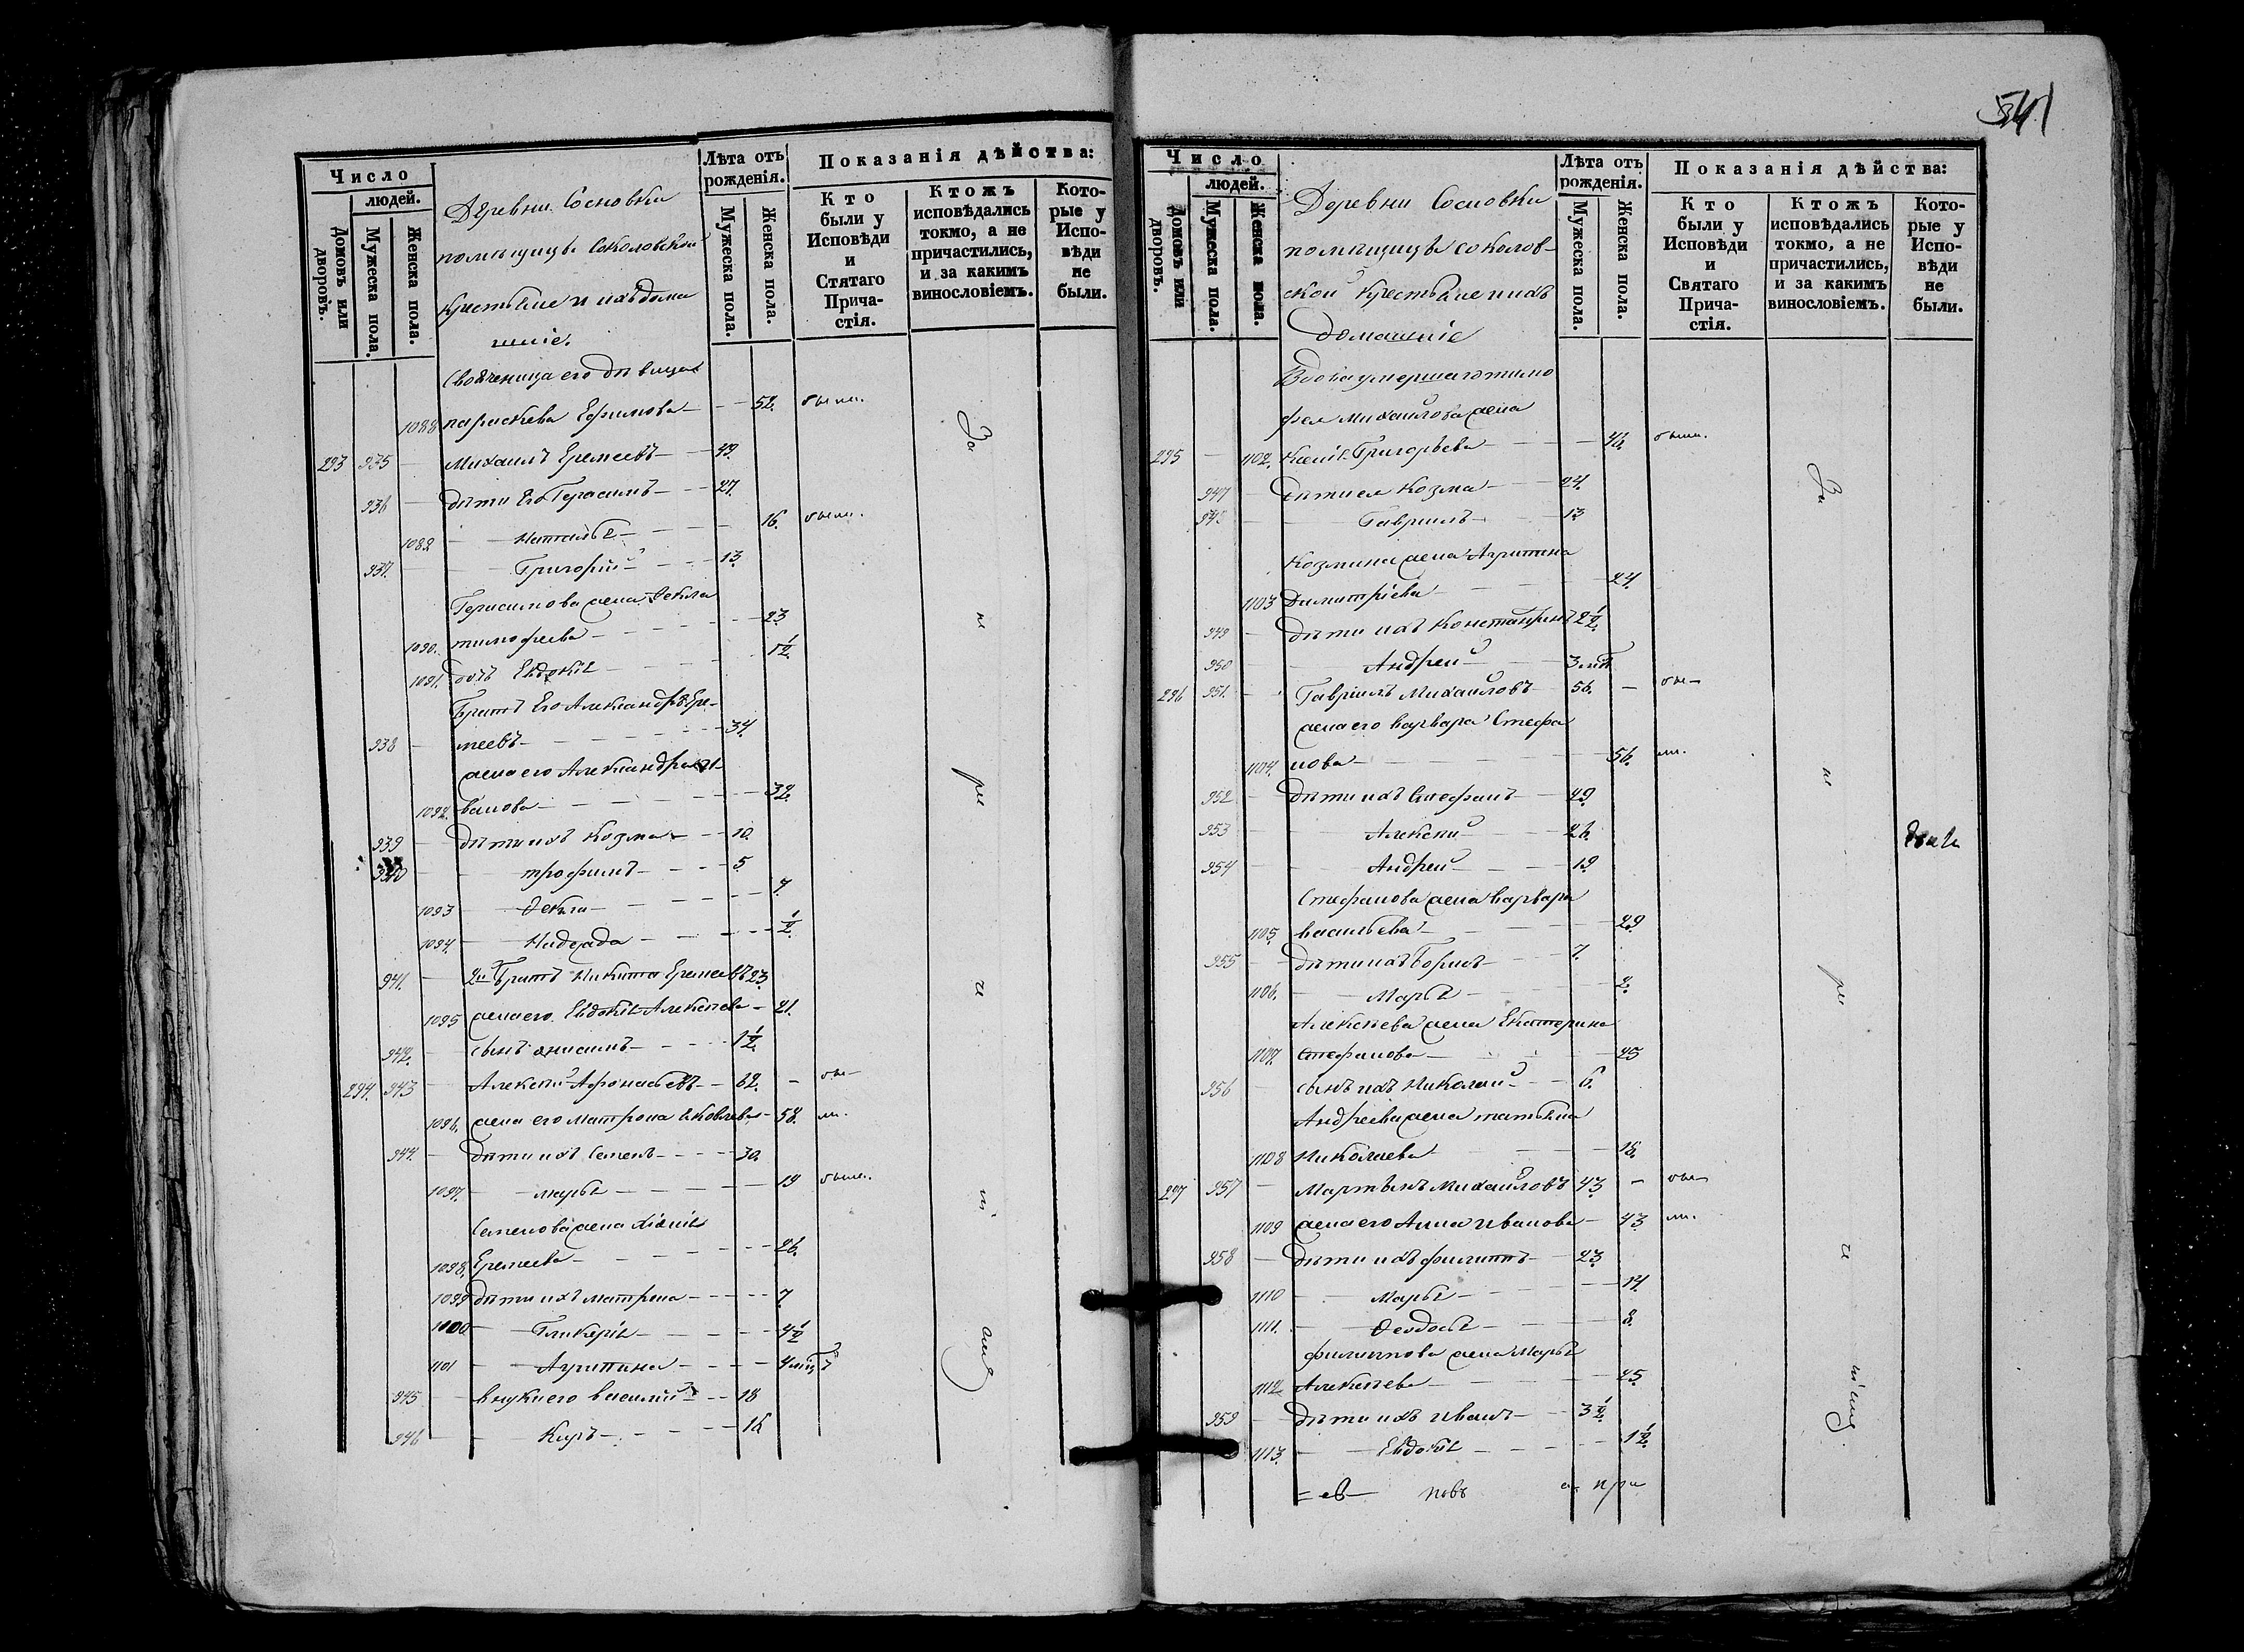 541
Число
людей.
Домовъ или дворовъ.
Мужеска пола.
Женска пола.
Деревни Сосновки
помѣщицы Соколовской
Крестьяне и ихъ дома
шніе.
Лѣта отъ рожденія.
Мужеска пола.
Женска пола.
Показанія дѣйства:
Кто были у Исповѣди и Стятаго Прича-стія.
Ктожъ исповѣдались токмо, а не причастились, и за какимъ винословіемъ.
Кото-рые у Испо-вѣди не были.
Своѣченица его дѣвица
1088 параскева Ефимова 52. были.
293 935 Михаилъ Еремеевъ 49.
936 дѣти Его Герасимъ 27.
1089 Наталья 16. были.
937. Григорій 13.
Герасимова жена Ѳекла
1090. тимофеева 23.
1091. дочь Евдокія 1½.
Братъ Его Александръ Ере-
938 меевъ 34.
жена его Александра И-
1092. ванова 32.
939 дѣти ихъ Козма 10.
940 трофимъ 5.
1093 Ѳекла 7.
1094. Надежда ½.
941. 2й Братъ Никита Еремеевъ 23.
1095 жена его Евдокія Алексѣева 21.
942. сынъ онисимъ 1½.
294. 943 Алексѣй Афонасьевъ 62. бы-
1096. жена его матрона яковлева 58. ли.
944. дѣти ихъ Семенъ 30.
1097. марья 19 были.
Семенова жена Ксенія
1098. Еремеева 26.
1099 дѣти ихъ матрона 7.
1100 Гликерія 4½
1101 Агрипина 4 мѣц.
945 внуки его василий 18
946 Киръ 16
За не при че ні емъ
Число
людей.
Домовъ или дворовъ.
Мужеска пола.
Женска пола.
Деревни Сосновки
помѣщицы соколов-
ской Крестьяне и ихъ
домашніе
Лѣта отъ рожденія.
Мужеска пола.
Женска пола.
Показанія дѣйства:
Кто были у Исповѣди и Святаго Прича-стія.
Ктожъ исповѣдались токмо, а не причастились, и за какимъ винословіемъ.
Кото-рые у Испо-вѣди не были.
Вдова умершаго тимо
фея Михайлова жена
295 1102. Ксенія Григорьева 46. были.
947 дѣти ея Козма 24.
948 Гавриилъ 13
Козмина жена Агрипина
1103 Димитріева 24.
949 дѣти ихъ Константинъ 2½.
950 Андрей 3 мѣ
296 951. Гавріилъ Михайловъ 56. бы-
жена его варвара Стефа
1104. нова 56. ли.
952 дѣти ихъ Стефанъ 29.
953 Алексѣй 26.
954 Андрей 19.
Стефанова жена варвара
1105. васильева 29
955 дѣти ихъ Борисъ 7.
1106. Марья 2.
Алексѣева жена Екатерина
1107. Стефанова 25
956 сынъ ихъ Николай 6.
Андреева жена татьяна
1108 Николаева 18.
297 957 Мартынъ Михайловъ 43 бы-
1109 жена его Анна Иванова 43 ли.
958 дѣти ихъ филиппъ 23.
1110 Марья 14.
1111. Ѳеодосья 8.
филиппова жена Марья
1112 Алексѣева 25.
959 дѣти ихъ иванъ 3½.
1113. Евдокія 1½.
За не при че ні емъ